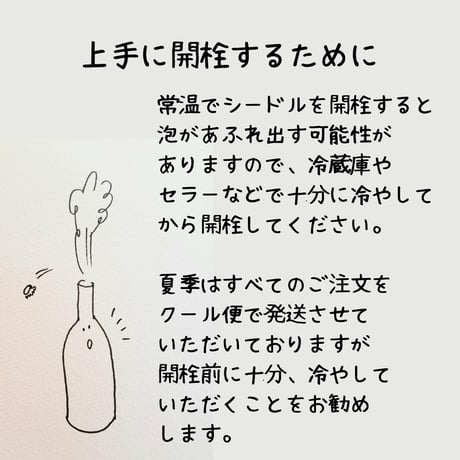 上手に開栓するために
常温でシードルを開栓すると
泡があふれ出す可能性が
ありますので、冷蔵庫や
セラーなどで十分に冷やして
から開栓してください。
夏季はすべてのご注文を
クール便で発送させて
いただいておりますが
開栓前に十分、冷やして
いただくことをお勧め
します。